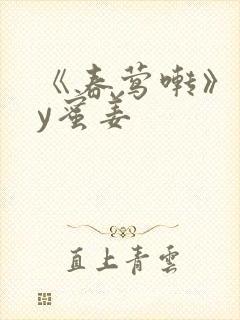 《春莺啭》
y蜜姜
直上青雲